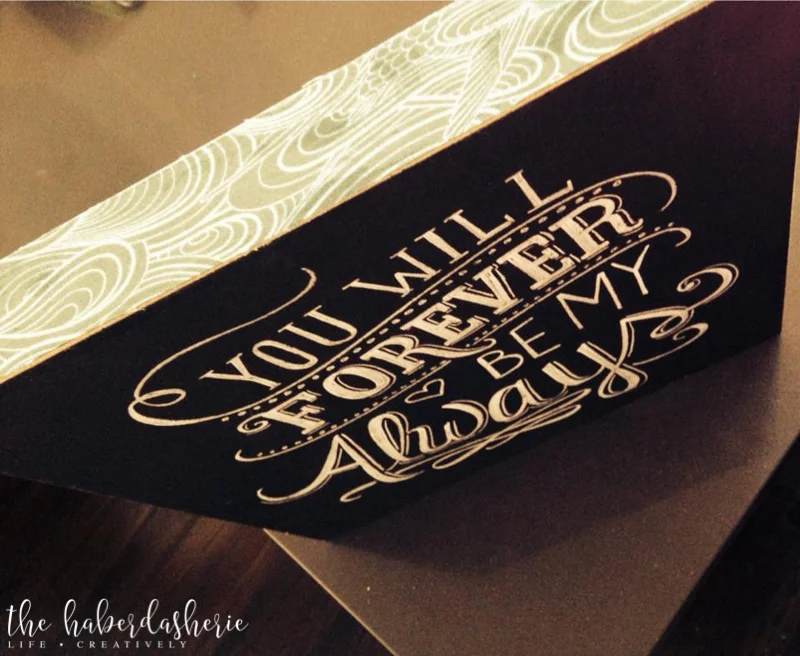 YOU WILL
FOREVER
BE MY
Always
the haberdasherie
LIFE • CREATIVELY